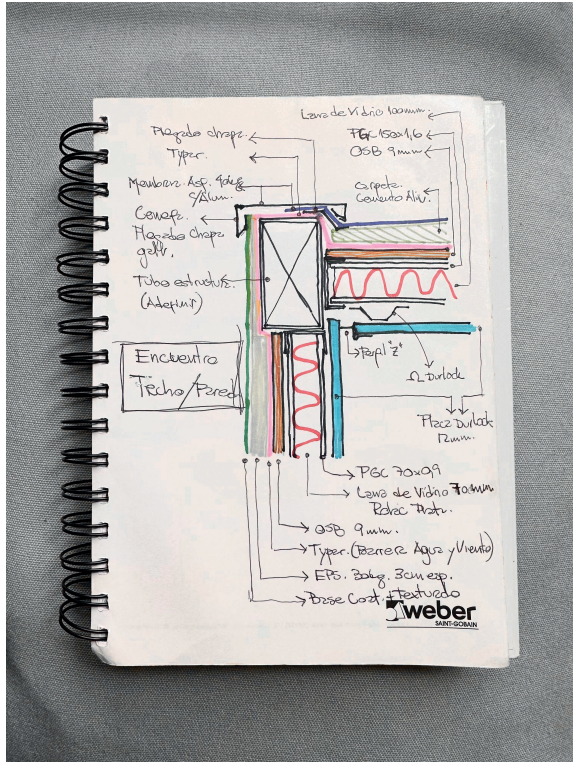 Lana de Vidrio 100mm.
PGC 150x1,6
OSB 9mm
Plegado chapa.
Typar.
Membrana Asf. 40kg
c/Alum.
Carpeta
Cemento Aliv.
Cenefa.
Plegado Chapa
galv.
Tubo estructur.
(A definir)
Encuentro
Techo/Pared
Perfil "Z"
Ω Durlock
Placa Durlock
12mm.
PGC 70x0,9
Lana de Vidrio 70mm
OSB 9mm.
Typar. (Barrera Agua y Viento)
EPS. 30kg. 3cm esp.
Base Coat. + texturado
weber
SAINT-GOBAIN